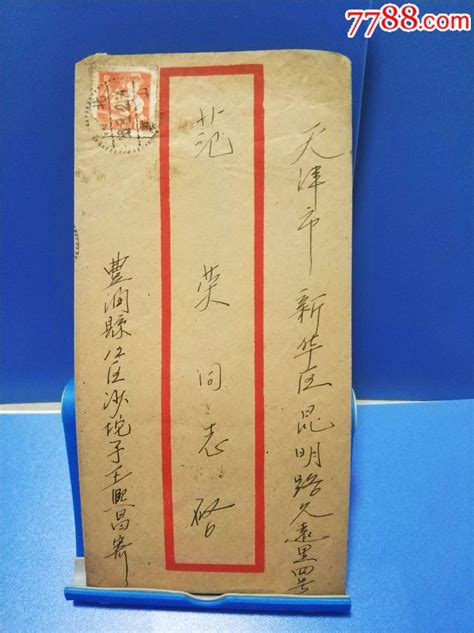 7788.com
天津市 新华区昆明路久远里四号
范 英同志 启
豊润縣八区沙坨子王熙昌寄